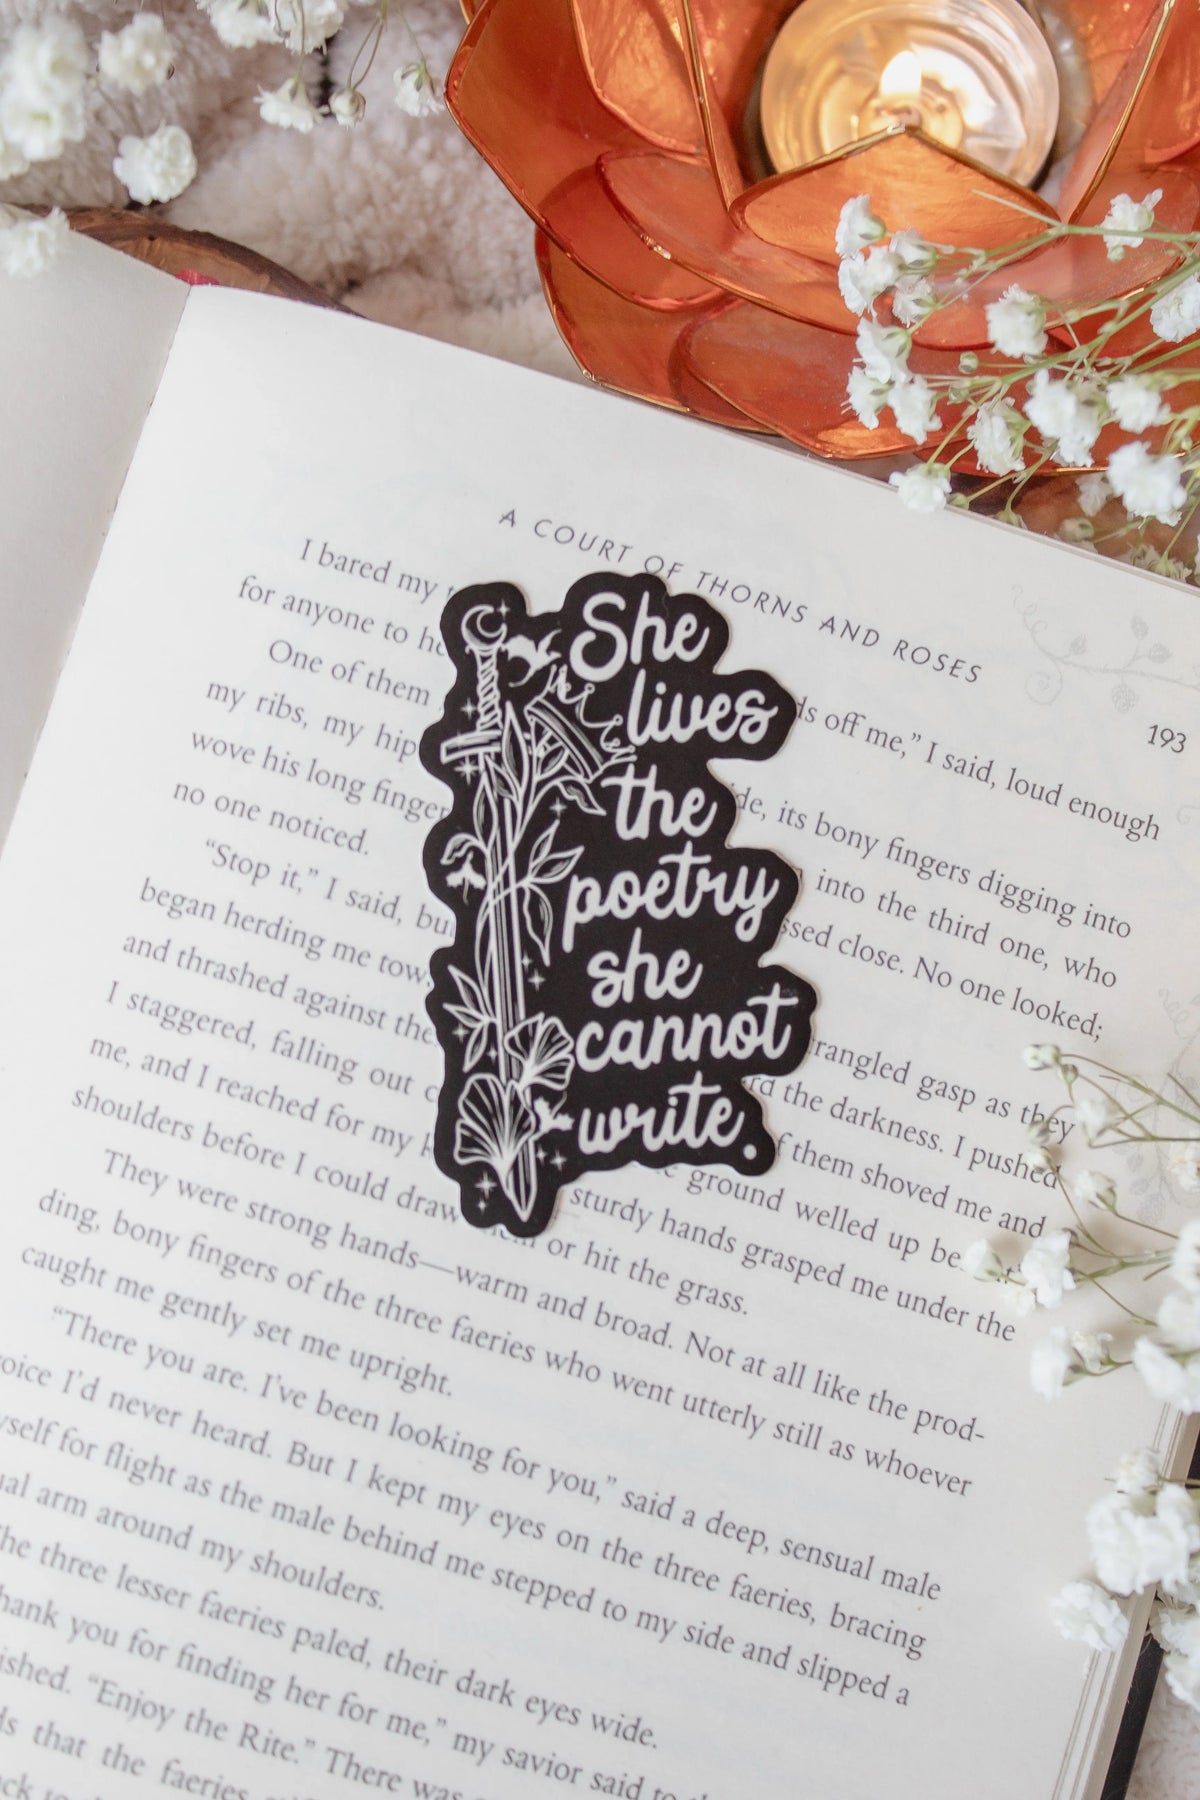 A COURT OF THORNS AND ROSES
193
She
lives
the
poetry
she
cannot
write.
I bared my off me,” I said, loud enough
for anyone to
One of them its bony fingers digging into
my ribs, my into the third one, who
wove his long close. No one looked;
no one noticed.
“Stop it,” I said, gasp as they
began herding me the darkness. I pushed
and thrashed against them shoved me and
I staggered, falling out ground welled up
me, and I reached for my sturdy hands grasped me under the
shoulders before I could draw or hit the grass.
They were strong hands—warm and broad. Not at all like the prod-
ding, bony fingers of the three faeries who went utterly still as whoever
caught me gently set me upright.
“There you are. I’ve been looking for you,” said a deep, sensual male
I’d never heard. But I kept my eyes on the three faeries, bracing
for flight as the male behind me stepped to my side and slipped a
arm around my shoulders.
three lesser faeries paled, their dark eyes wide.
you for finding her for me,” my savior said
“Enjoy the Rite.” There was
that the faeries